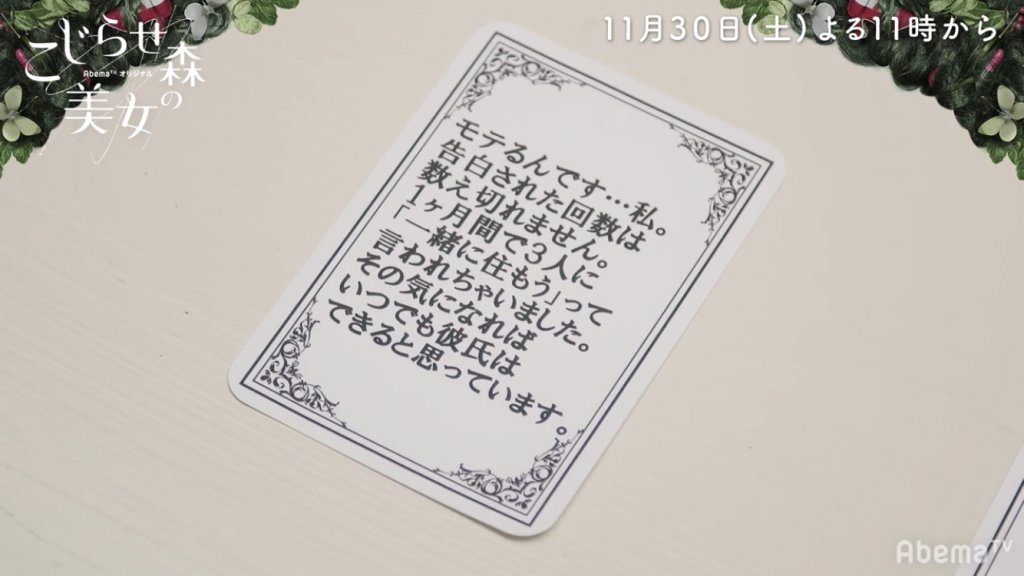 こじらせ森の美女
AbemaTVオリジナル
11月30日(土)よる11時から
モテるんです…私。
告白された回数は
数え切れません。
1ヶ月間で3人に
「一緒に住もう」って
言われちゃいました。
その気になれば
いつでも彼氏は
できると思っています。
AbemaTV